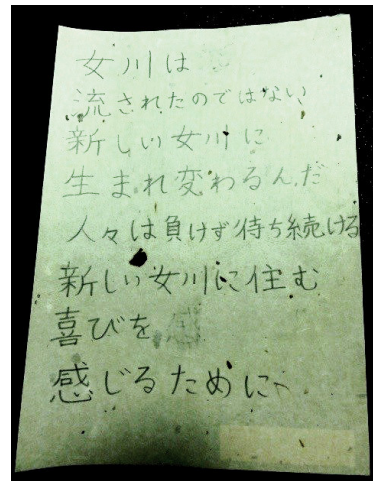 女川は
流されたのではない
新しい女川に
生まれ変わるんだ
人々は負けず待ち続ける
新しい女川に住む
喜びを
感じるために